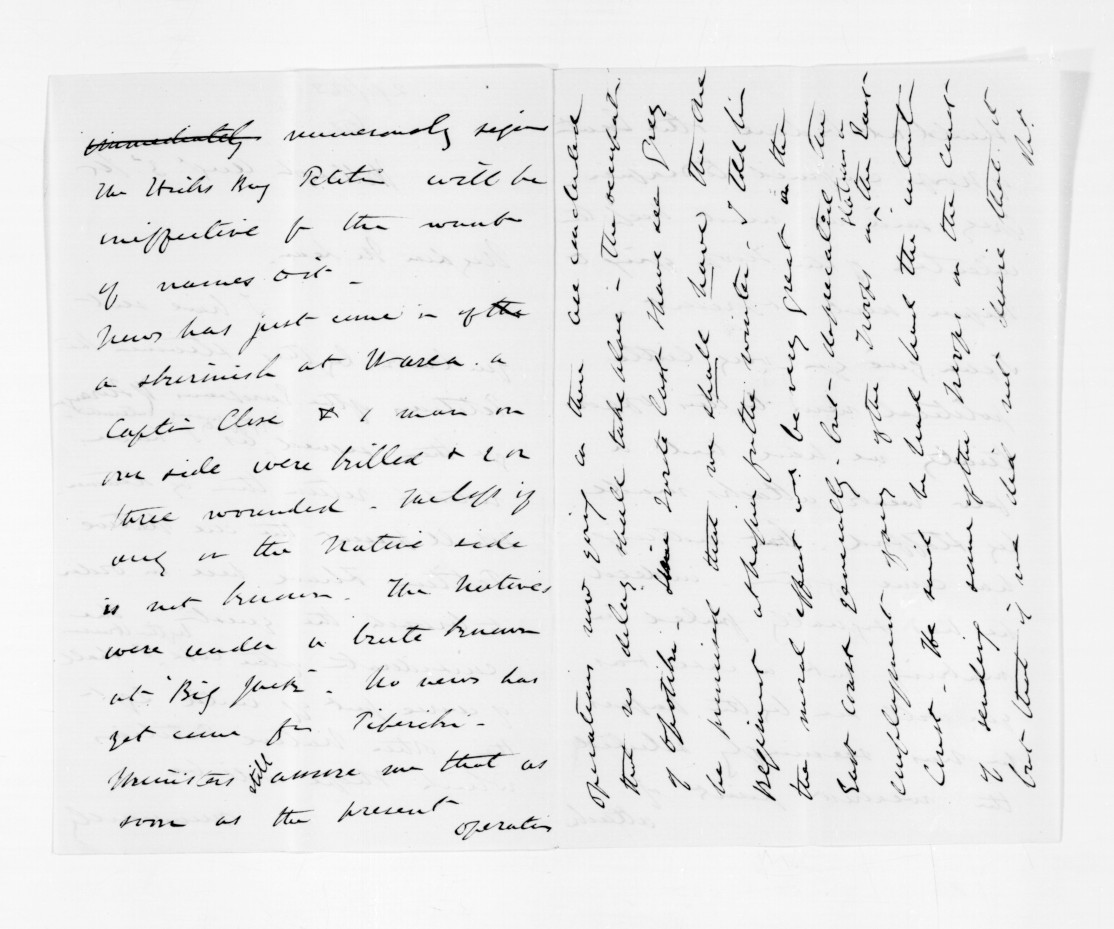 ~~immediately~~ numerously signed
the Hicks Bay Petitn will be
ineffective for the want
of names to it -
News has just come in of the
a skirmish at Warea. a
Captn Close & 1 man on
our side were killed & 2 or
three wounded - The loss if
any on the Native side
is not known. The Natives
were under a brute known
as "Big Jack". No news has
yet come from Pipiriki -
Ministers still assure me that as
soon as the present operatins
operations now going on there are concluded
that no delay shall take place in the occupatn
of Opotiki - Since I wrote last I have seen Grey
he promised that we shall have the one
Regiment at Napier for the winter - I told him
the moral effect wd. be very great on the
East Coast generally - but deprecated the
employment of any of the Troops in the East
Natives
Coast - He said he had had the intentn
of sending some of the troops on the coast
but that if we did not desire that it